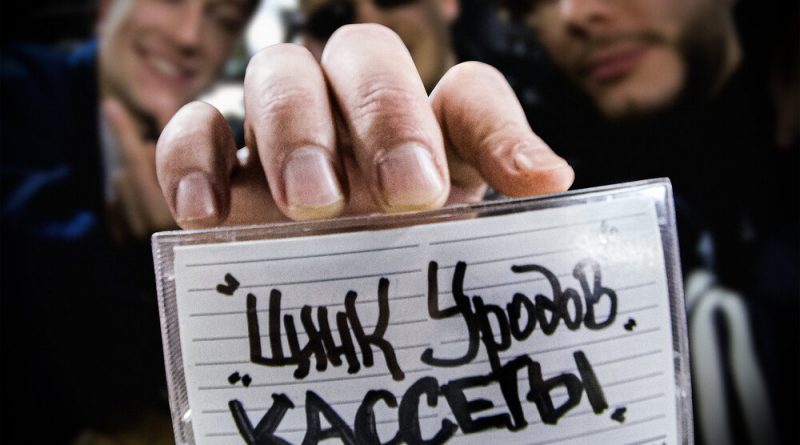 "Цинк Уродов"
"КАССЕТЫ"